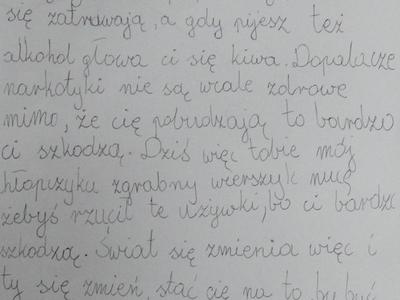 się zatruwają, a gdy pijesz też
alkohol głowa ci się kiwa. Dopalacze
narkotyki nie są wcale zdrowe
mimo, że cię pobudzają to bardzo
ci szkodzą. Dziś więc tobie mój
chłopczyku zgrabny wierszyk nucę
żebyś rzucił te używki, bo ci bardzo
szkodzą. Świat się zmienia więc i
ty się zmień, stać cię na to by być